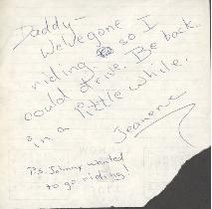 Daddy-
We've gone
riding. so I
could drive. Be back
in a little while.
Jeanene
P.S. Johnny wanted
to go riding!